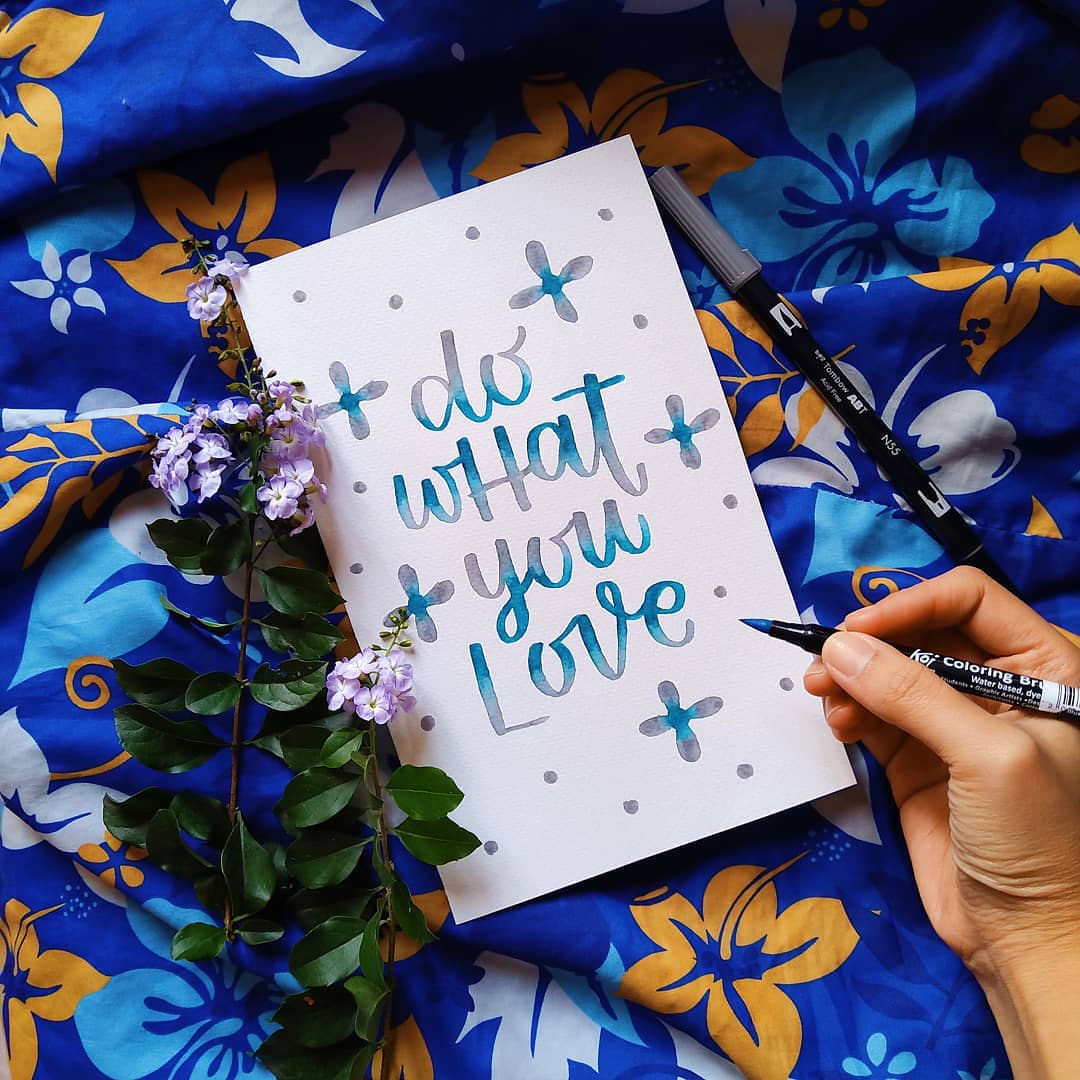 do
wHat
you
Love
Tombow ABT
Acid Free
N55
Koi Coloring Bru
Water based, dye
Students • Graphic Artists •